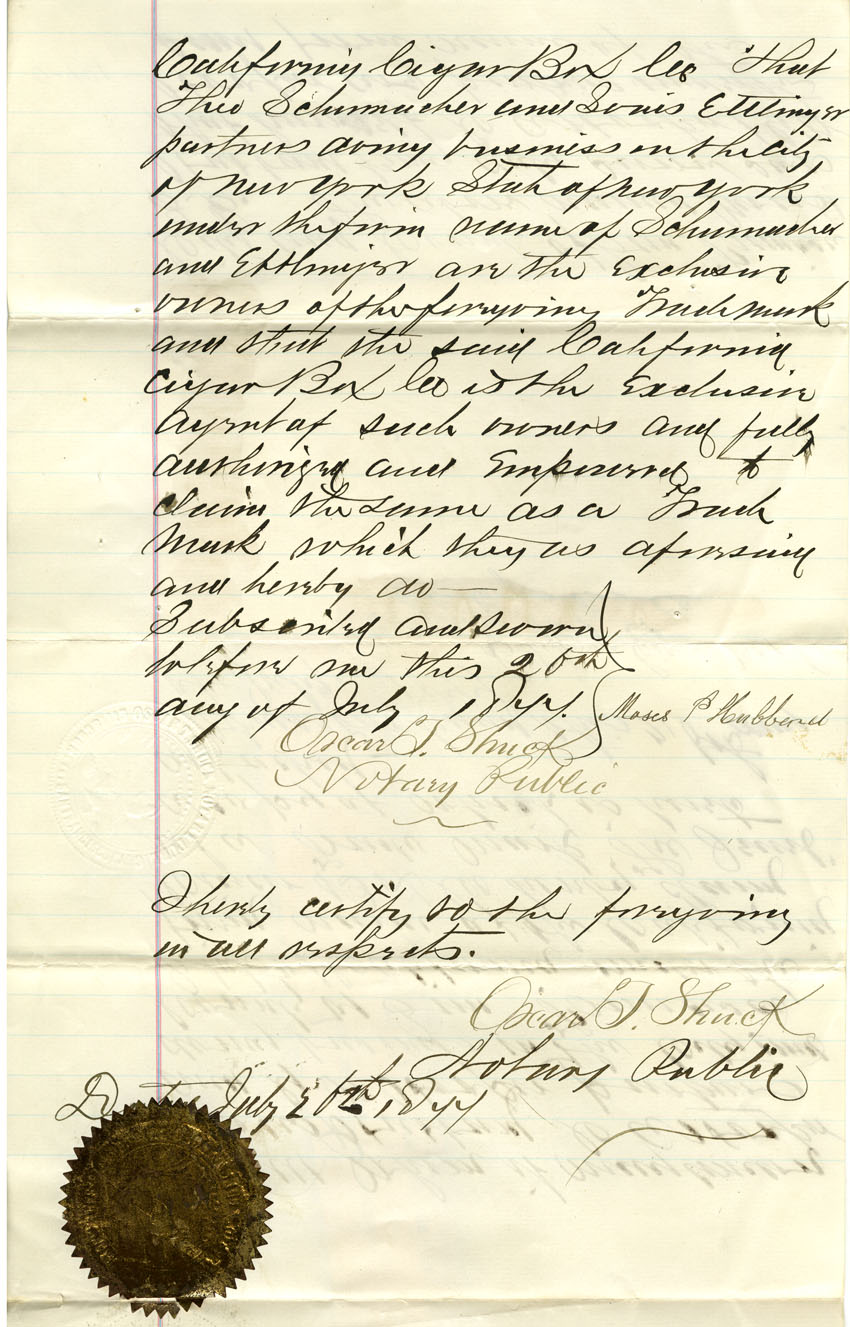 California Cigar Box Co that
Theo Schumacher and Louis Ettlinger
partners doing business in the city
of New York State of New York
under the firm name of Schumacher
and Ettlinger are the exclusive
owners of the foregoing Trade mark
and that the said California
Cigar Box Co is the exclusive
agent of such owners and fully
authorized and empowered to
claim the same as a Trade
Mark which they as aforesaid
and hereby do —
Subscribed and sworn
to before me this 26th
day of July 1877. Moses P Hubbard
Oscar T. Shuck
Notary Public
I hereby certify to the foregoing
in all respects.
Oscar T. Shuck
Notary Public
July 26th 1877